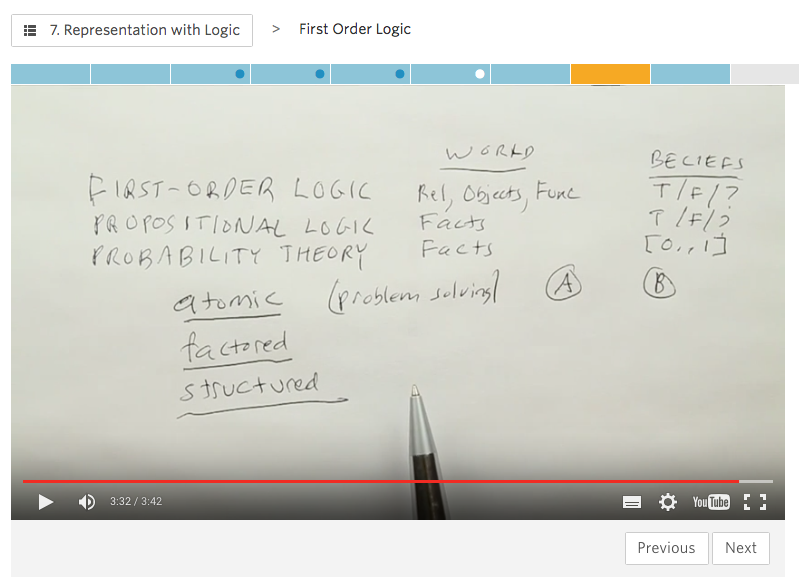 7. Representation with Logic > First Order Logic
WORLD BELIEFS
FIRST-ORDER LOGIC Rel, Objects, Func T/F/?
PROPOSITIONAL LOGIC Facts T/F/?
PROBABILITY THEORY Facts [0..1]
atomic (problem solving) A B
factored
structured
3:32 / 3:42 YouTube
Previous Next